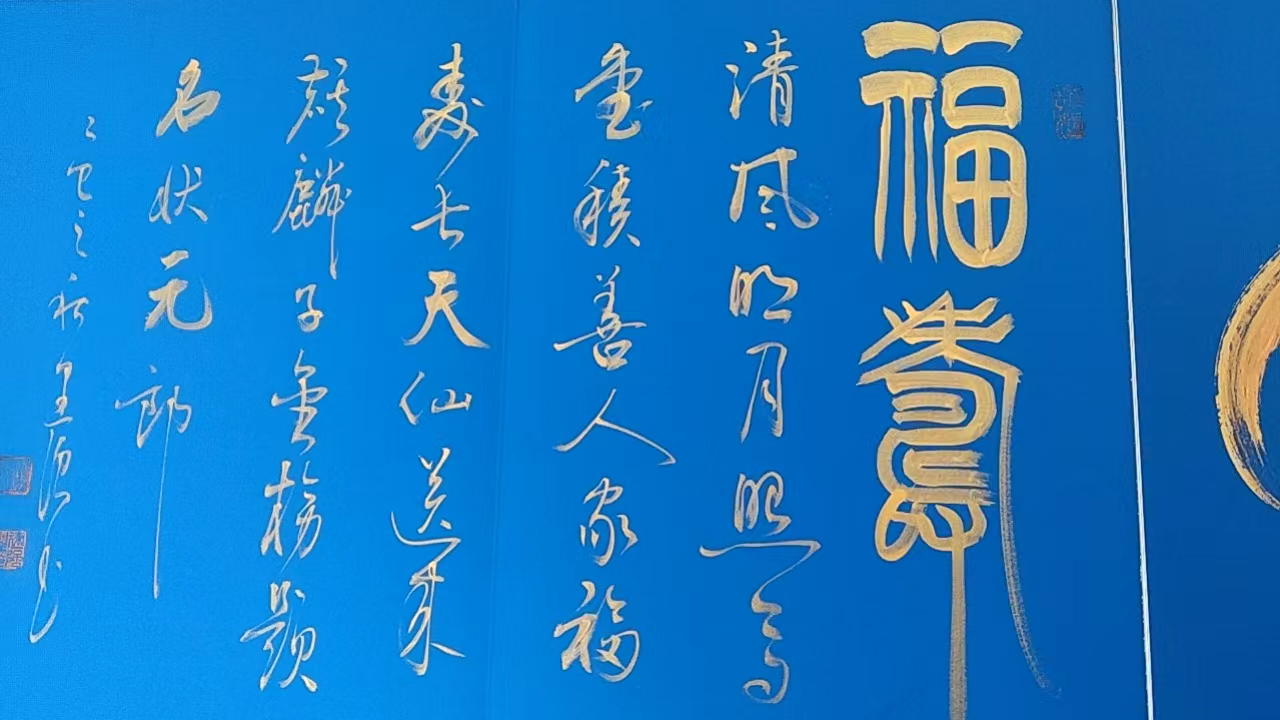 福壽
清風明月照高
堂積善人家福
壽長天仙送来
麒麟子金榜題
名状元郎
乙巳之秋